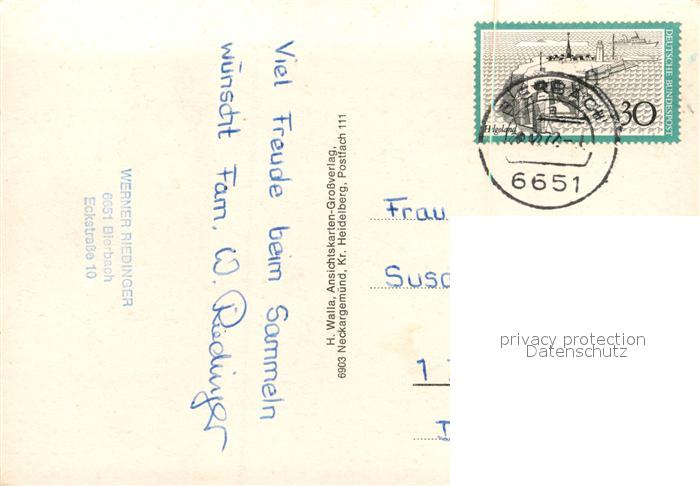 Viel Freude beim Sammeln
wünscht Fam. W. Riedinger
WERNER RIEDINGER
6651 Bierbach
Eckstraße 10
H. Walla, Ansichtskarten-Großverlag,
6903 Neckargemünd, Kr. Heidelberg, Postfach 111
DEUTSCHE BUNDESPOST
30
Helgoland
BIERBACH
6651
Frau
privacy protection
Datenschutz